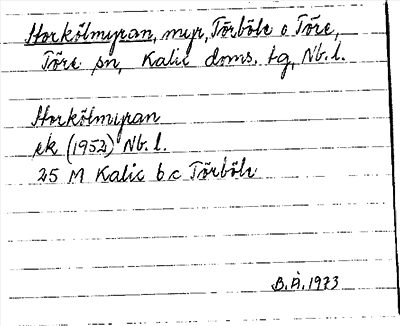 Storkölmyran, myr, Törböle o Töre,
Töre sn, Kalix doms. tg, Nb. l.
Storkölmyran
ek (1952) Nb. l.
25 M Kalix b c Törböle
B.Å. 1973